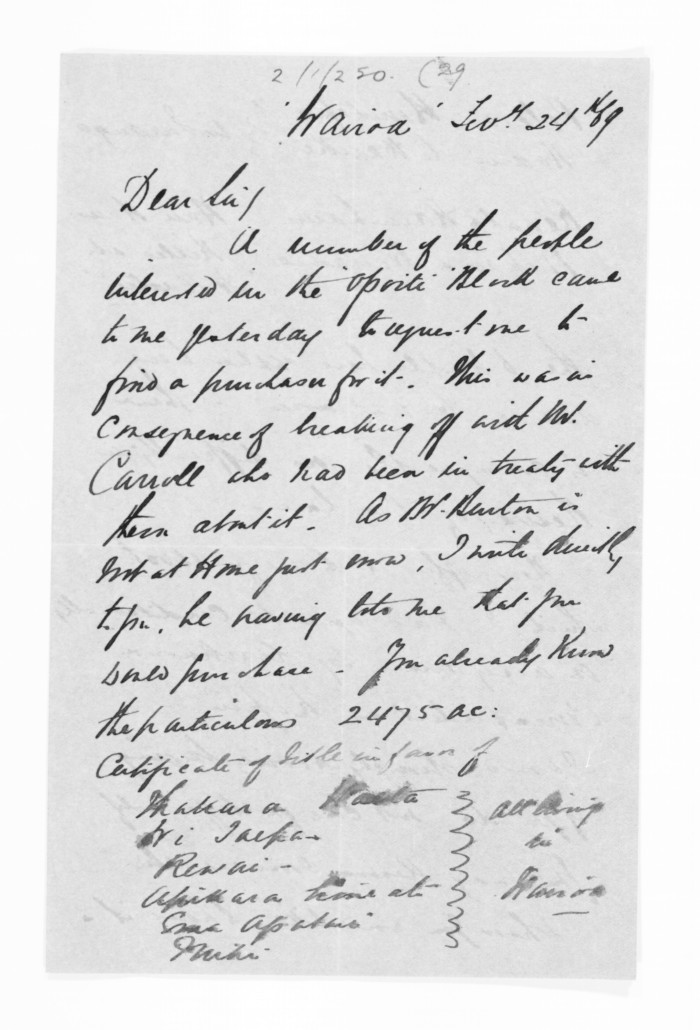 2/1/250. (29
"Wairoa" Novr. 24th 69
Dear Sir/
A number of the people
interested in the "Opoiti" Block came
to me yesterday to request me to
find a purchaser for it. This was in
consequence of breaking off with Mr.
Carroll who had been in treaty with
them about it. As Mr. Burton is
not at Home just now, I write directly
to you, he having told me that you
would purchase - You already know
the particulars 2475 ac:
Certificate of Title in favor of
Wi
Rewai -
Apikara
Ema Apatari
all living
in
Wairoa